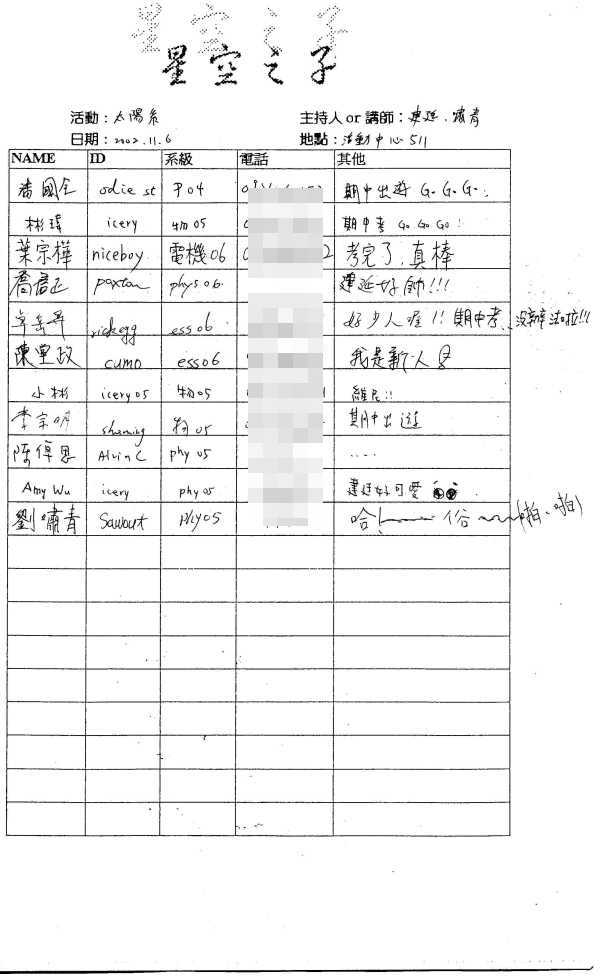 星空之子
星空之子
活動：太陽系 主持人 or 講師：建廷、嘯青
日期：2002.11.6 地點：活動中心 511
NAME ID 系級 電話 其他
odie st P04 期中出遊 G. G. G.
彬瑋 icery 物05 期中考 Go Go Go！
葉宗樺 niceboy 電機06 2 考完了，真棒
喬君正 paxton phys 06. 建廷好帥!!!
rickegg ess06 好少人喔!! 期中考、沒辦法啦!!!
cumo ess06 我是新人
小彬 icery05 物05 維尼!!
李宗明 物05 期中出遊
陈倬思 Alvin C phy 05 ....
Amy Wu icery phy 05 建廷好可愛
劉嘯青 Sawout phy05 哈 俗 (啪、啪)